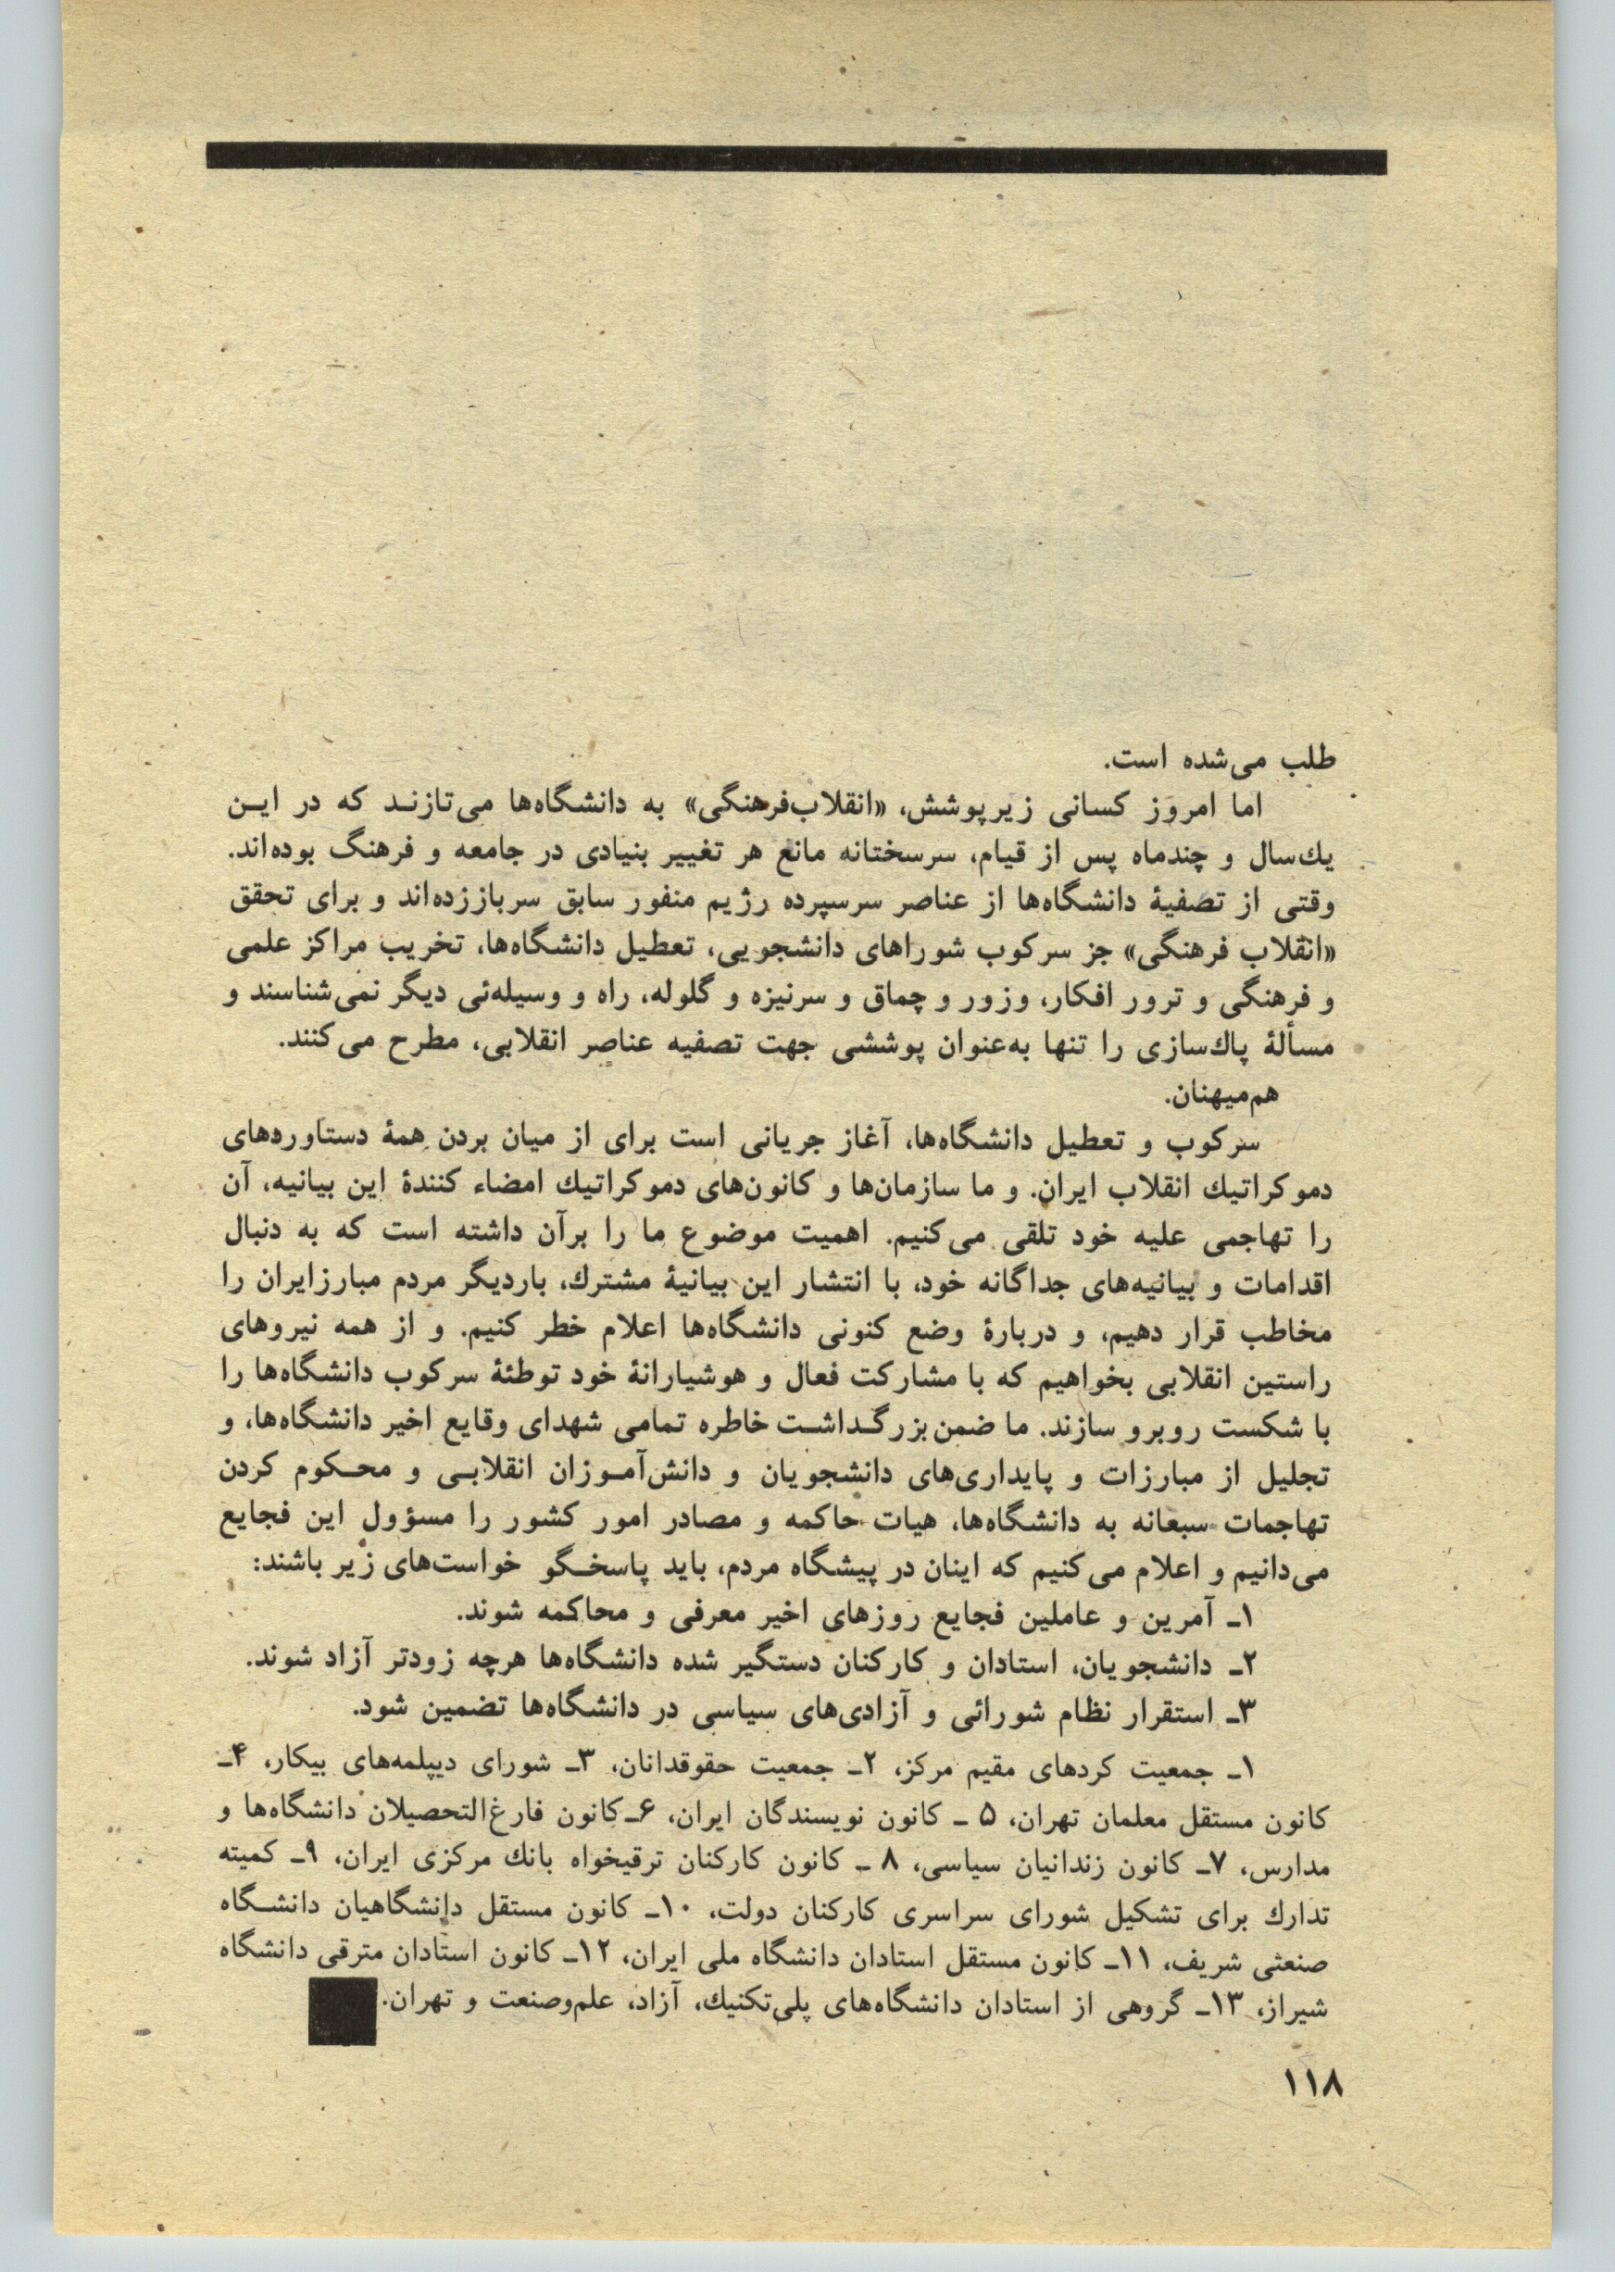 طلب می‌شده است.
اما امروز کسانی زیرپوشش، «انقلاب‌فرهنگی» به دانشگاه‌ها می‌تازنـد که در ایـن
یك‌سال و چندماه پس از قیام، سرسختانه مانع هر تغییر بنیادی در جامعه و فرهنگ بوده‌اند.
وقتی از تصفیهٔ دانشگاه‌ها از عناصر سرسپرده رژیم منفور سابق سرباززده‌اند و برای تحقق
«انقلاب فرهنگی» جز سرکوب شوراهای دانشجویی، تعطیل دانشگاه‌ها، تخریب مراکز علمی
و فرهنگی و ترور افکار، وزور و چماق و سرنیزه و گلوله، راه و وسیله‌ئی دیگر نمی‌شناسند و
مسألهٔ پاك‌سازی را تنها به‌عنوان پوششی جهت تصفیه عناصر انقلابی، مطرح می‌کنند.
هم‌میهنان.
سرکوب و تعطیل دانشگاه‌ها، آغاز جریانی است برای از میان بردن همهٔ دستاوردهای
دموکراتیك انقلاب ایران. و ما سازمان‌ها و کانون‌های دموکراتیك امضاء کنندهٔ این بیانیه، آن
را تهاجمی علیه خود تلقی می‌کنیم. اهمیت موضوع ما را برآن داشته است که به دنبال
اقدامات و بیانیه‌های جداگانه خود، با انتشار این بیانیهٔ مشترك، باردیگر مردم مبارزایران را
مخاطب قرار دهیم، و دربارهٔ وضع کنونی دانشگاه‌ها اعلام خطر کنیم. و از همه نیروهای
راستین انقلابی بخواهیم که با مشارکت فعال و هوشیارانهٔ خود توطئهٔ سرکوب دانشگاه‌ها را
با شکست روبرو سازند. ما ضمن‌بزرگـداشـت خاطره تمامی شهدای وقایع اخیر دانشگاه‌ها، و
تجلیل از مبارزات و پایداری‌های دانشجویان و دانش‌آمـوزان انقلابـی و محـکوم کردن
تهاجمات سبعانه به دانشگاه‌ها، هیات حاکمه و مصادر امور کشور را مسؤول این فجایع
می‌دانیم و اعلام می‌کنیم که اینان در پیشگاه مردم، باید پاسخـگو خواست‌های زیر باشند:
۱ـ آمرین و عاملین فجایع روزهای اخیر معرفی و محاکمه شوند.
۲ـ دانشجویان، استادان و کارکنان دستگیر شده دانشگاه‌ها هرچه زودتر آزاد شوند.
۳ـ استقرار نظام شورائی و آزادی‌های سیاسی در دانشگاه‌ها تضمین شود.
۱ـ جمعیت کردهای مقیم مرکز، ۲ـ جمعیت حقوقدانان، ۳ـ شورای دیپلمه‌های بیکار، ۴ـ
کانون مستقل معلمان تهران، ۵ ـ کانون نویسندگان ایران، ۶ـ‌کانون فارغ‌التحصیلان دانشگاه‌ها و
مدارس، ۷ـ کانون زندانیان سیاسی، ۸ ـ کانون کارکنان ترقیخواه بانك مرکزی ایران، ۹ـ کمیته
تدارك برای تشکیل شورای سراسری کارکنان دولت، ۱۰ـ کانون مستقل دانشگاهیان دانشـگاه
صنعتی شریف، ۱۱ـ کانون مستقل استادان دانشگاه ملی ایران، ۱۲ـ کانون استادان مترقی دانشگاه
شیراز، ۱۳ـ گروهی از استادان دانشگاه‌های پلی‌تکنیك، آزاد، علم‌وصنعت و تهران.
۱۱۸